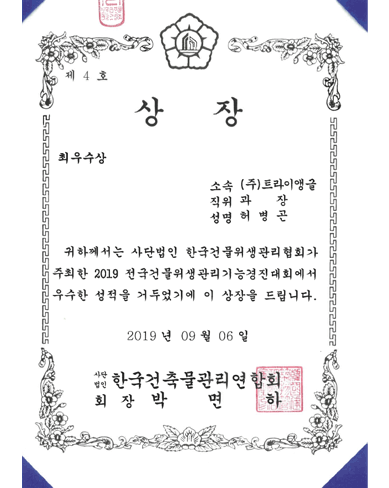 제 4 호
상 장
최우수상
소속 (주)트라이앵글
직위 과 장
성명 허 병 곤
귀하께서는 사단법인 한국건물위생관리협회가
주최한 2019 전국건물위생관리기능경진대회에서
우수한 성적을 거두었기에 이 상장을 드립니다.
2019 년 09 월 06 일
사단법인 한국건축물관리연합회
회 장 박 면 하